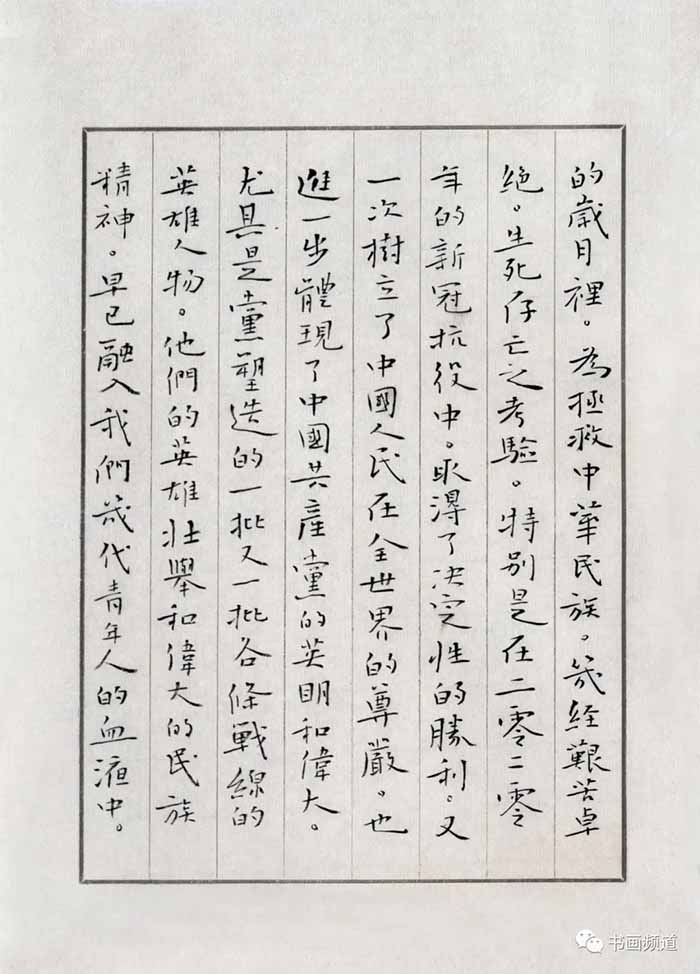 的歲月裡。為拯救中華民族。幾經艱苦卓
絕。生死存亡之考驗。特别是在二零二零
年的新冠抗役中。取得了决定性的勝利。又
一次樹立了中國人民在全世界的尊嚴。也
進一步體現了中國共産黨的英明和偉大。
尤其是黨塑造的一批又一批各條戰線的
英雄人物。他們的英雄壯舉和偉大的民族
精神。早已融入我們幾代青年人的血液中。
书画频道